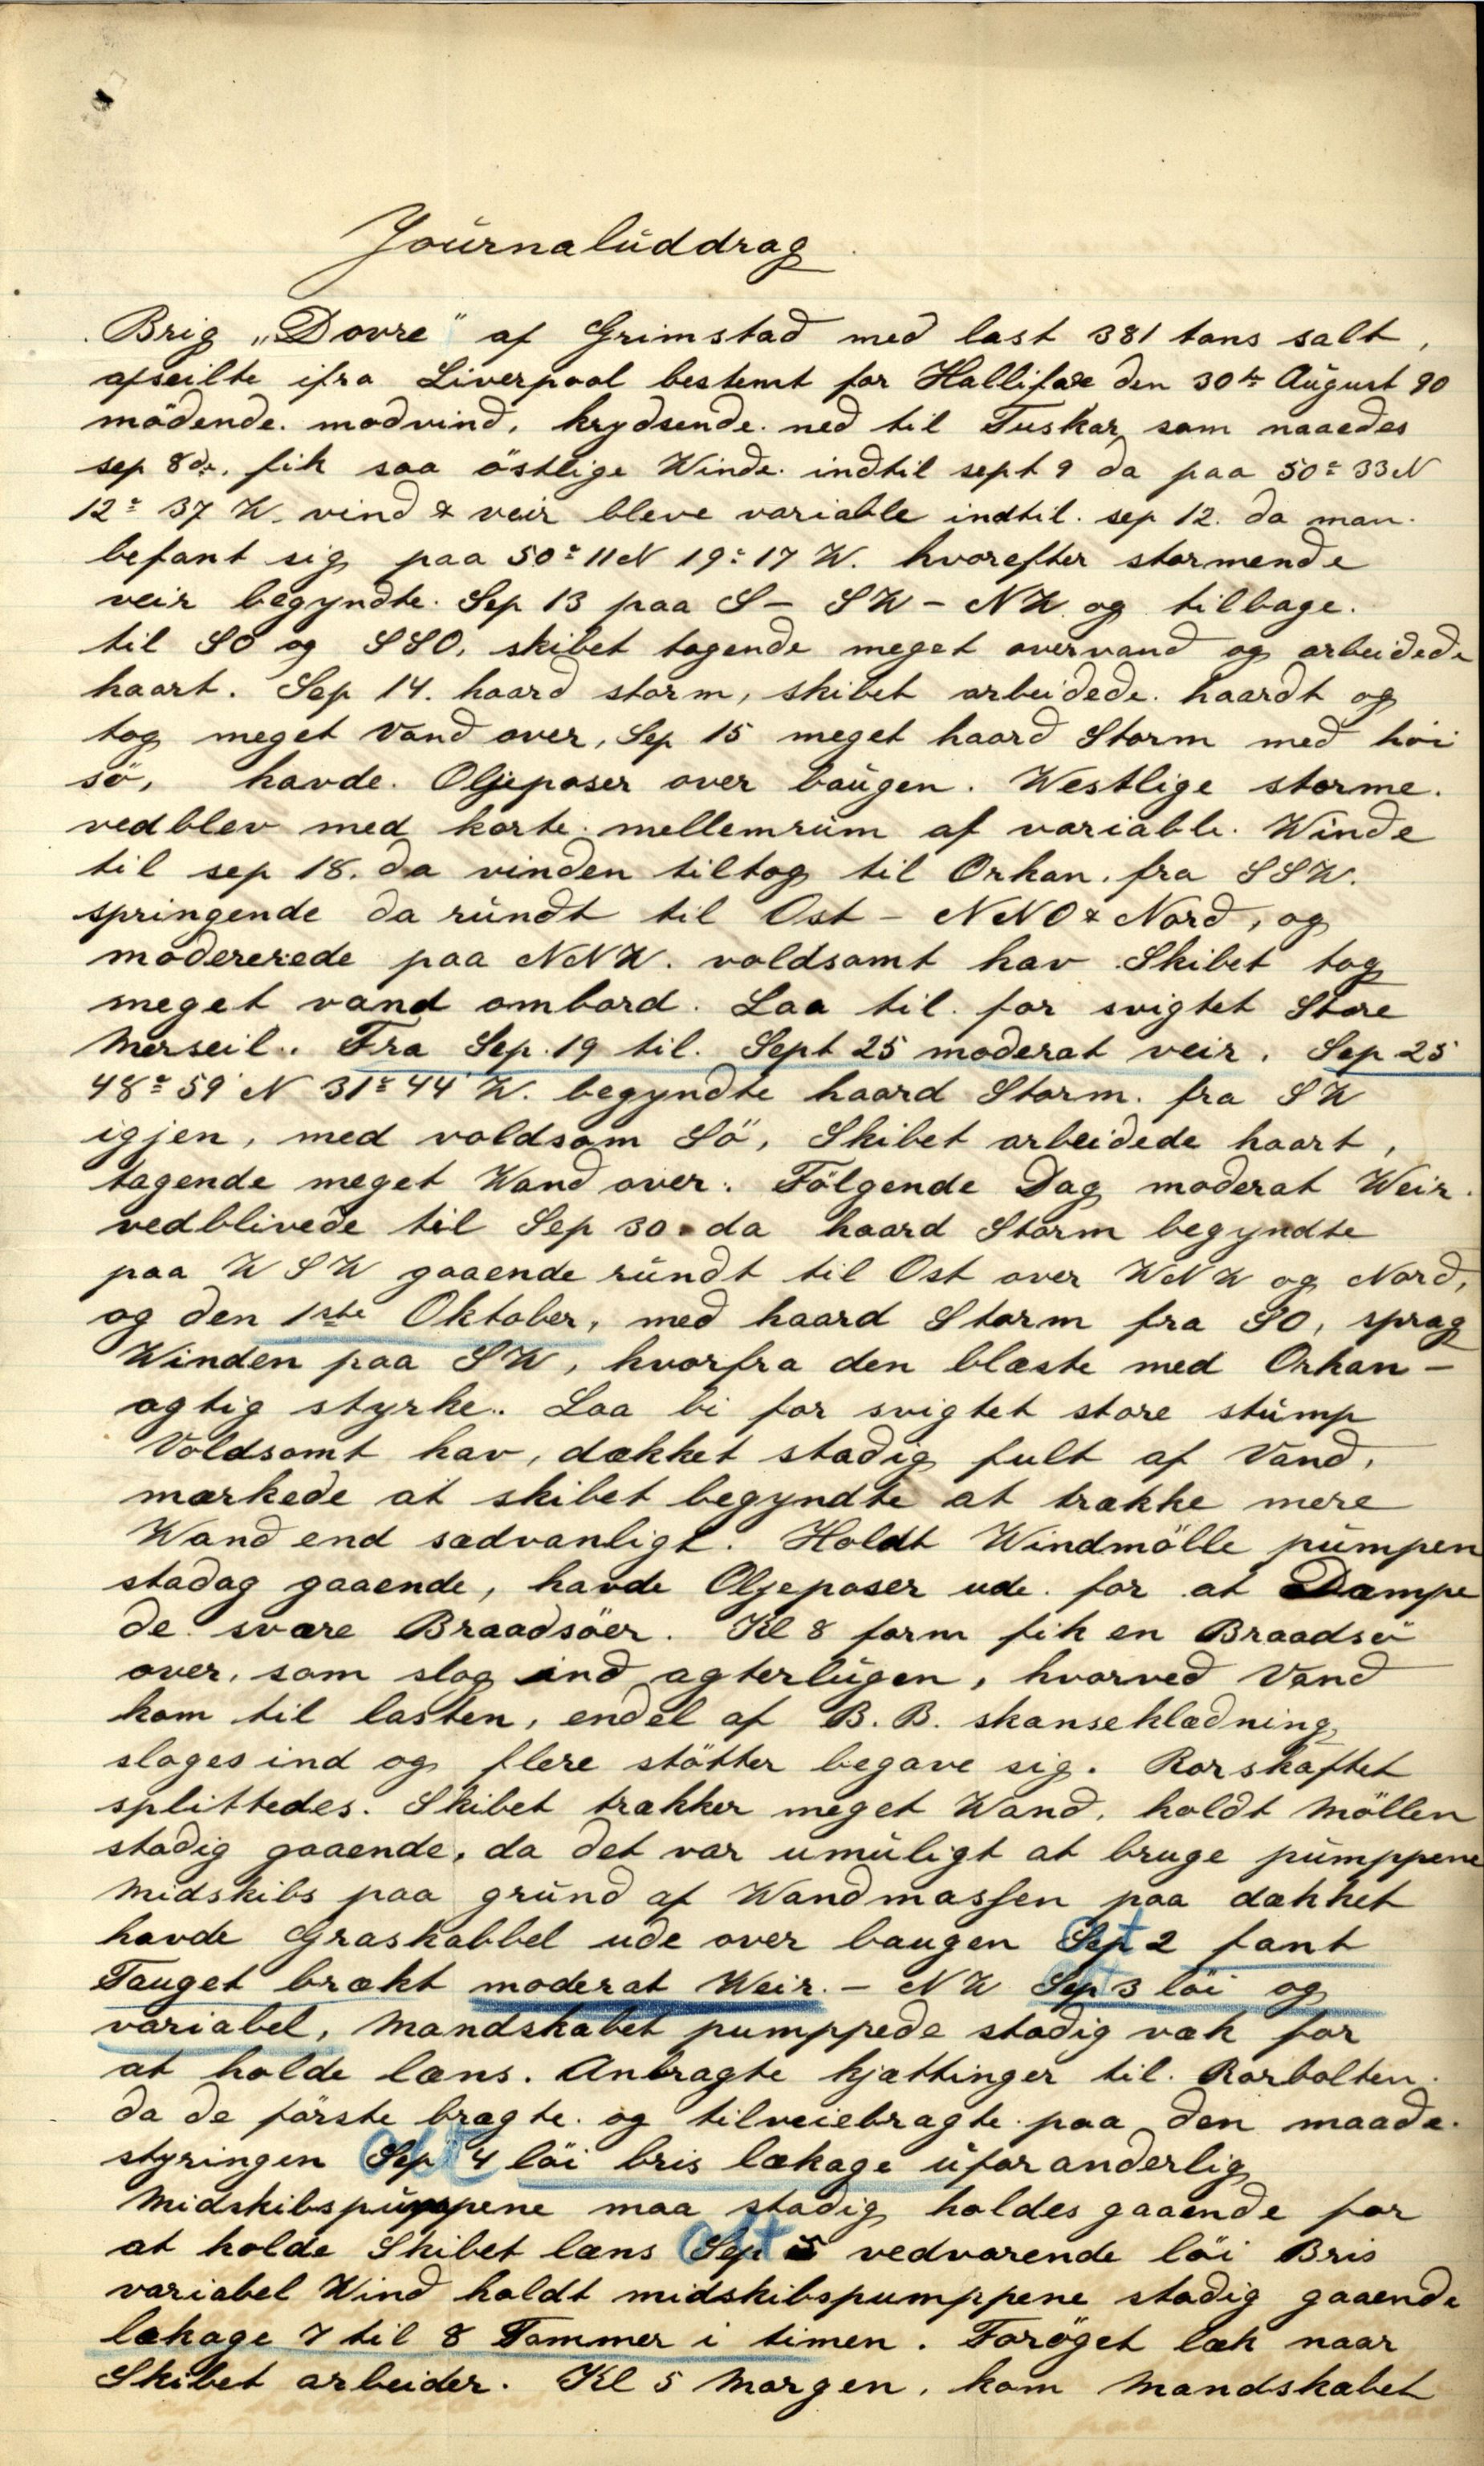 Journaluddrag
Brig „Dovre" af Grimstad med last 381 tons salt,
afseilte ifra Liverpool bestemt for Hallifax den 30te August 90
mödende modvind, krydsende ned til Tuskar som naaedes
sep 8de, fik saa östlige Winde indtil sept 9 da paa 50° 33 N
12° 37 W. vind & veir bleve variable indtil sep 12. da man
befant sig paa 50° 11 N 19° 17 W. hvorefter stormende
veir begyndte Sep 13 paa S – SW – NW og tilbage
til SO og SSO, skibet tagende meget overvand og arbeidede
haart. Sep 14. haard storm, skibet arbeidede haardt og
tog meget Vand over, Sep 15 meget haard Storm med höi
sö, havde Oljeposer over baugen. Westlige storme
vedblev med korte mellemrum af variable Winde
til sep 18. da vinden tiltog til Orkan fra SSW.
springende da rundt til Ost – NNO & Nord, og
modererede paa NNW. voldsomt hav Skibet tog
meget vand ombord. Laa til for svigtet Store
Merseil. Fra Sep. 19 til Sept 25 moderat veir. Sep 25
48° 59' N 31° 44' W. begyndte haard Storm fra SW
igjen, med voldsom Sö, Skibet arbeidede haart,
tagende meget Wand over. Fölgende Dag moderat Weir
vedblivede til Sep 30. da haard Storm begyndte
paa WSW gaaende rundt til Ost over WNW og Nord,
og den 1ste Oktober, med haard Storm fra SO, sprag
Winden paa SW, hvorfra den blæste med Orkan-
agtig styrke. Laa bi for svigtet store stump
Voldsomt hav, dækket stadig fult af Vand,
mærkede at skibet begyndte at trække mere
Wand end sædvanligt. Holdt Windmölle pumpen
stadag gaaende, havde Oljeposer ude for at Dæmpe
de svære Braadsöer. Kl 8 form fik en Braadsö
over, som slog ind agterlugen, hvorved Vand
kom til lasten, endel af B.B. skanseklædning
sloges ind og flere stötter begave sig. Rorskaftet
splittedes. Skibet trækker meget Wand, holdt Möllen
stadig gaaende, da det var umuligt at bruge pumppene
Midskibs paa grund af Wandmassen paa dækket
havde Græskabbel ude over baugen Sept 2 fant
Tauget brækt moderat Weir. – NW Sep 3 löi og
variabel, Mandskabet pumppede stadig væk for
at holde læns. Anbragte kjættinger til Rorbolten
da de förste bragte og tilveiebragte paa den maade
styringen Sep Okt 4 löi bris lækage uforanderlig
Midskibspumppene maa stadig holdes gaaende for
at holde Skibet læns Sep Okt 5 vedvarende löi Bris
variabel Wind holdt midskibspumppene stadig gaaende
lækage 7 til 8 Tommer i timen. Foröget læk naar
Skibet arbeider. Kl 5 Morgen, kom Mandskabet